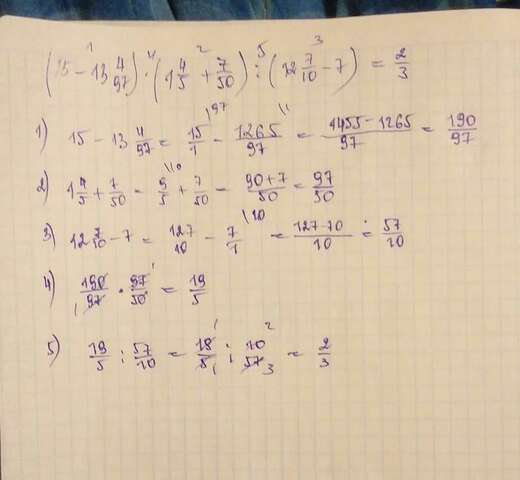 (15 - 13 4/97) · (1 4/5 + 7/50) : (12 7/10 - 7) = 2/3
1) 15 - 13 4/97 = 15/1 - 1265/97 = 1455-1265/97 = 190/97
2) 1 4/5 + 7/50 = 9/5 + 7/50 = 90+7/50 = 97/50
3) 12 7/10 - 7 = 127/10 - 7/1 = 127-70/10 = 57/10
4) 190/97 · 97/50 = 19/5
5) 19/5 : 57/10 = 19/5 : 10/57 = 2/3